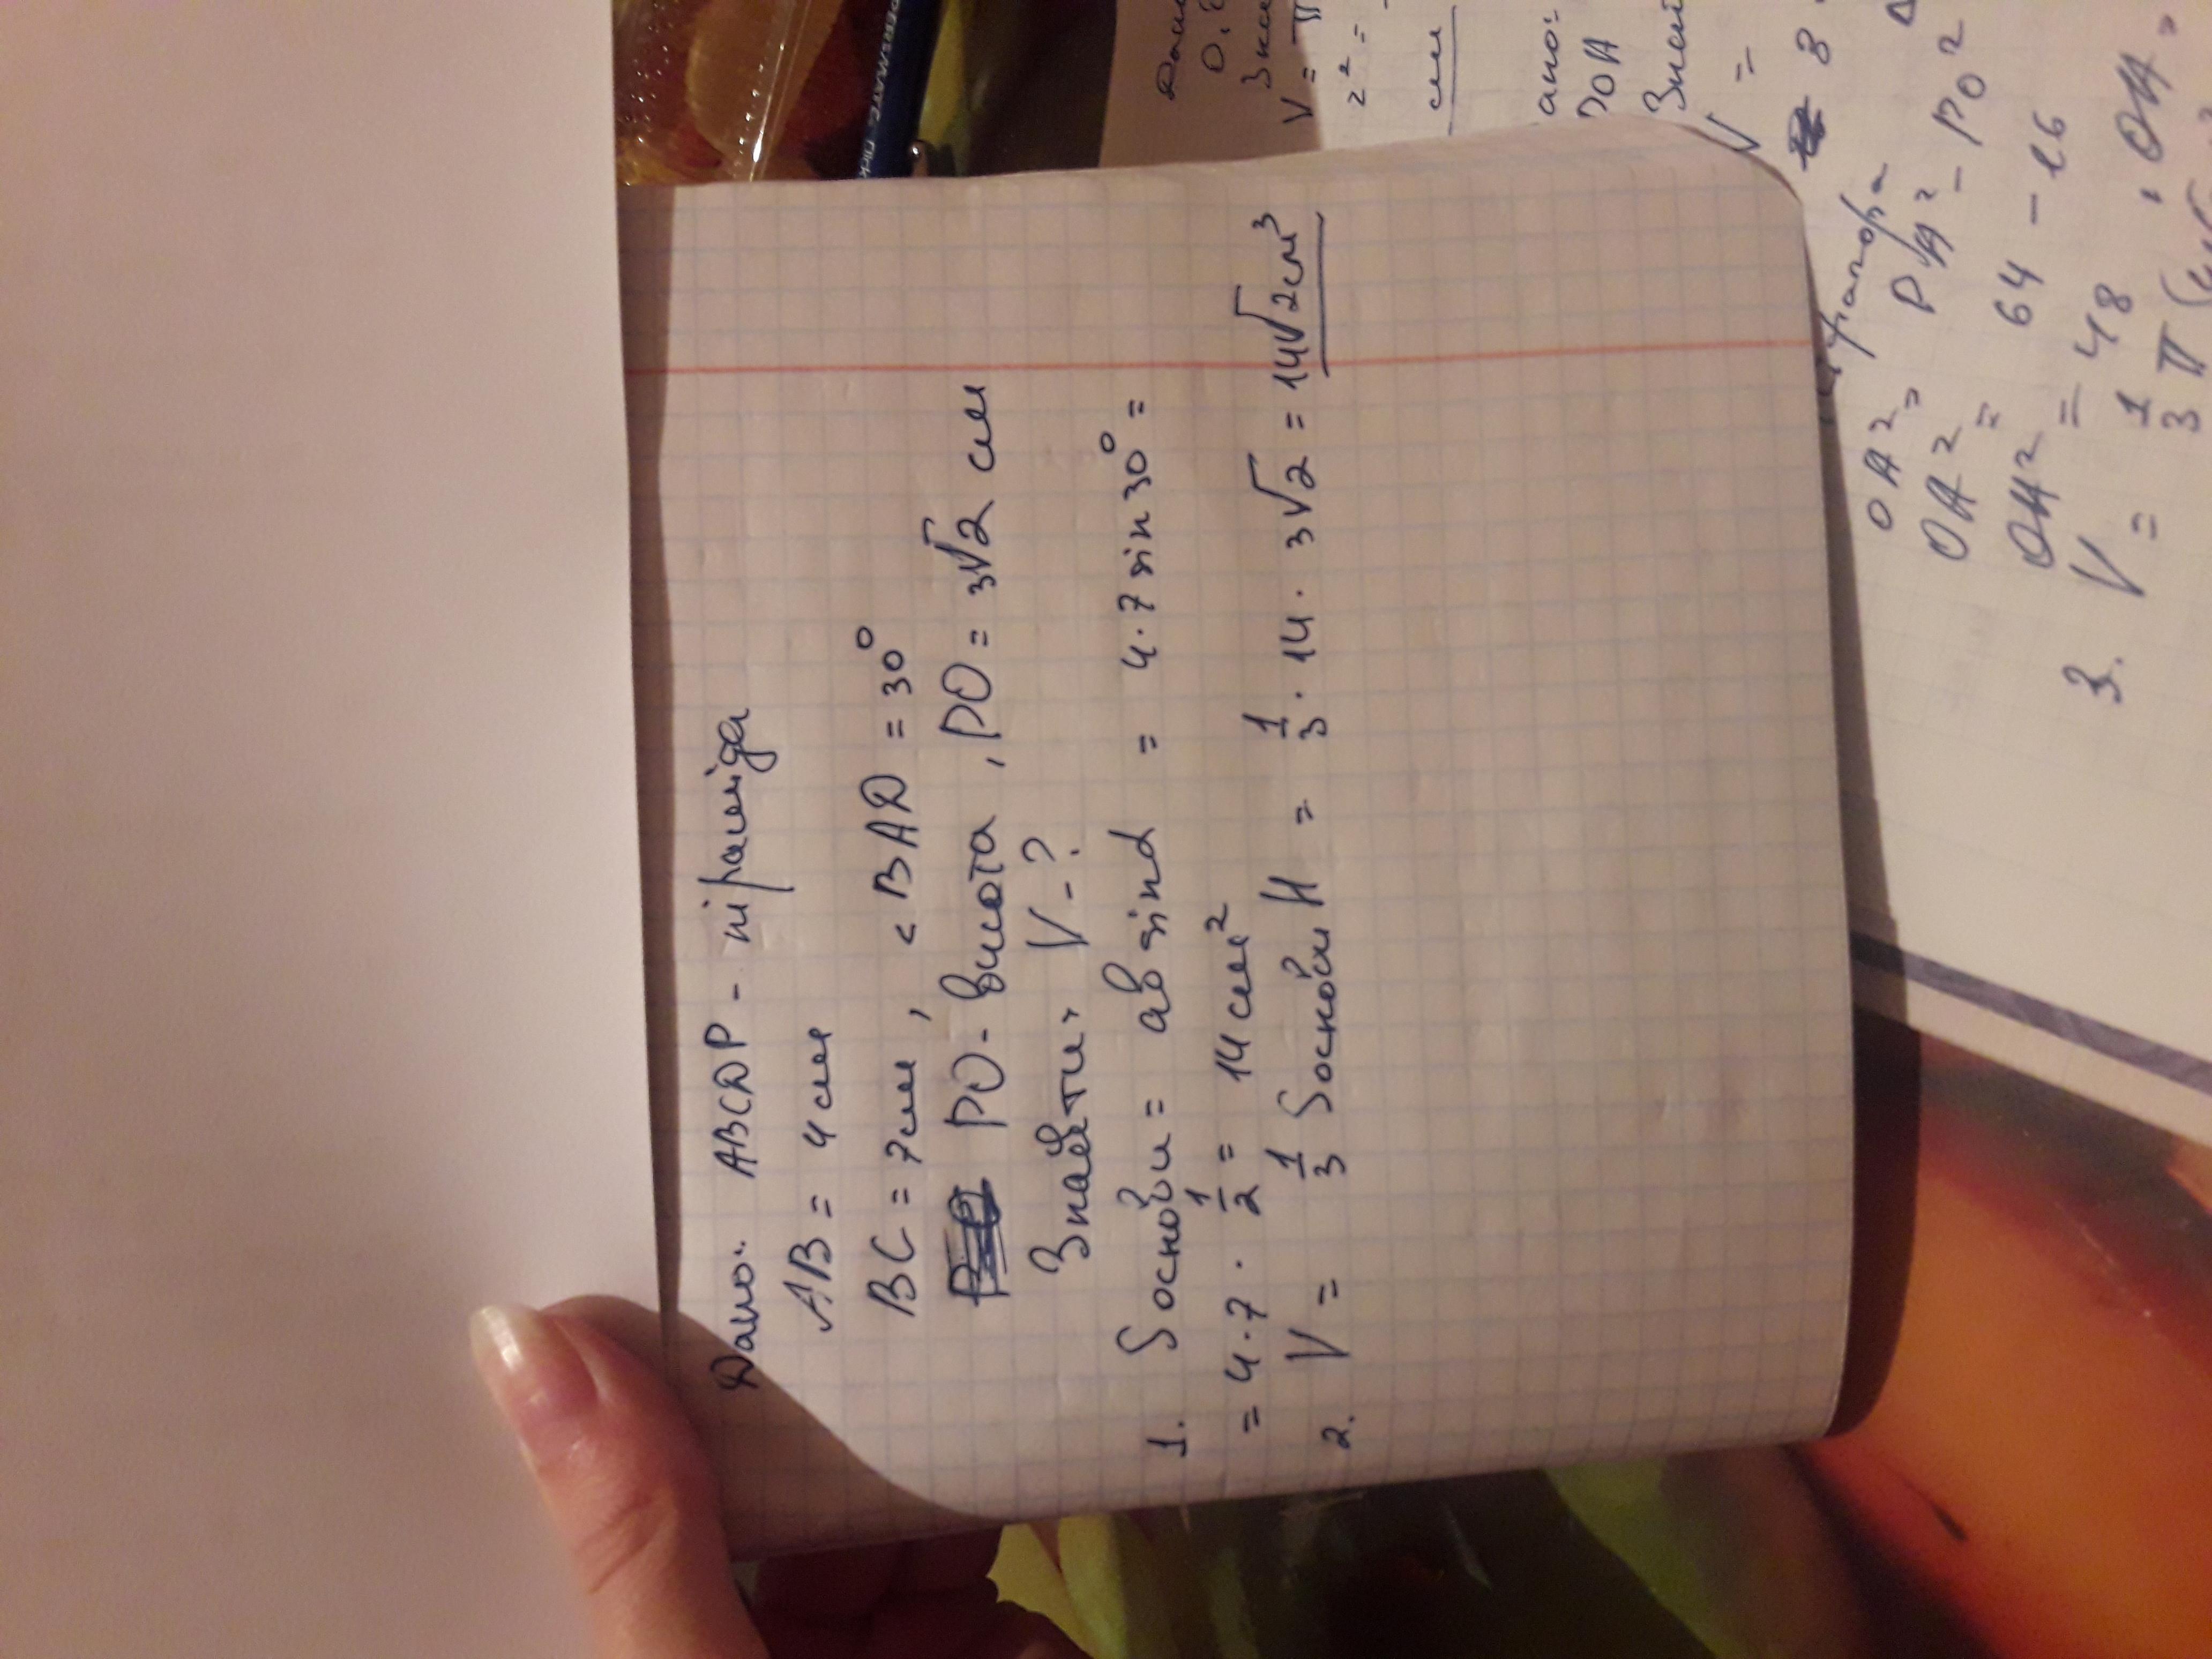 Дано: ABCDP - піраміда
AB = 4 см
BC = 7 см, < BAD = 30°
PO - висота, PO = 3√2 см
Знайти: V - ?
1. Sоснови = ab sin α = 4·7 sin 30° =
= 4·7·1/2 = 14 см²
2. V = 1/3 Sоснови H = 1/3 · 14 · 3√2 = 14√2 см³
V =
r² =
см
ано:
POA
Знай
V =
8
OA² = PA² - PO²
OA² = 64 - 16
OA² = 48, OA =
3. V = 1/3 π (4√